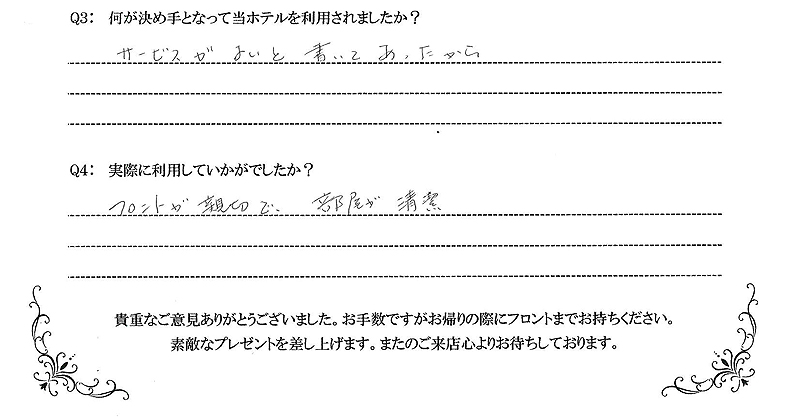 Q3： 何が決め手となって当ホテルを利用されましたか？
サービスが よいと 書いて あったから
Q4： 実際に利用していかがでしたか？
フロントが 親切で、 部屋が 清潔
貴重なご意見ありがとうございました。お手数ですがお帰りの際にフロントまでお持ちください。
素敵なプレゼントを差し上げます。またのご来店心よりお待ちしております。